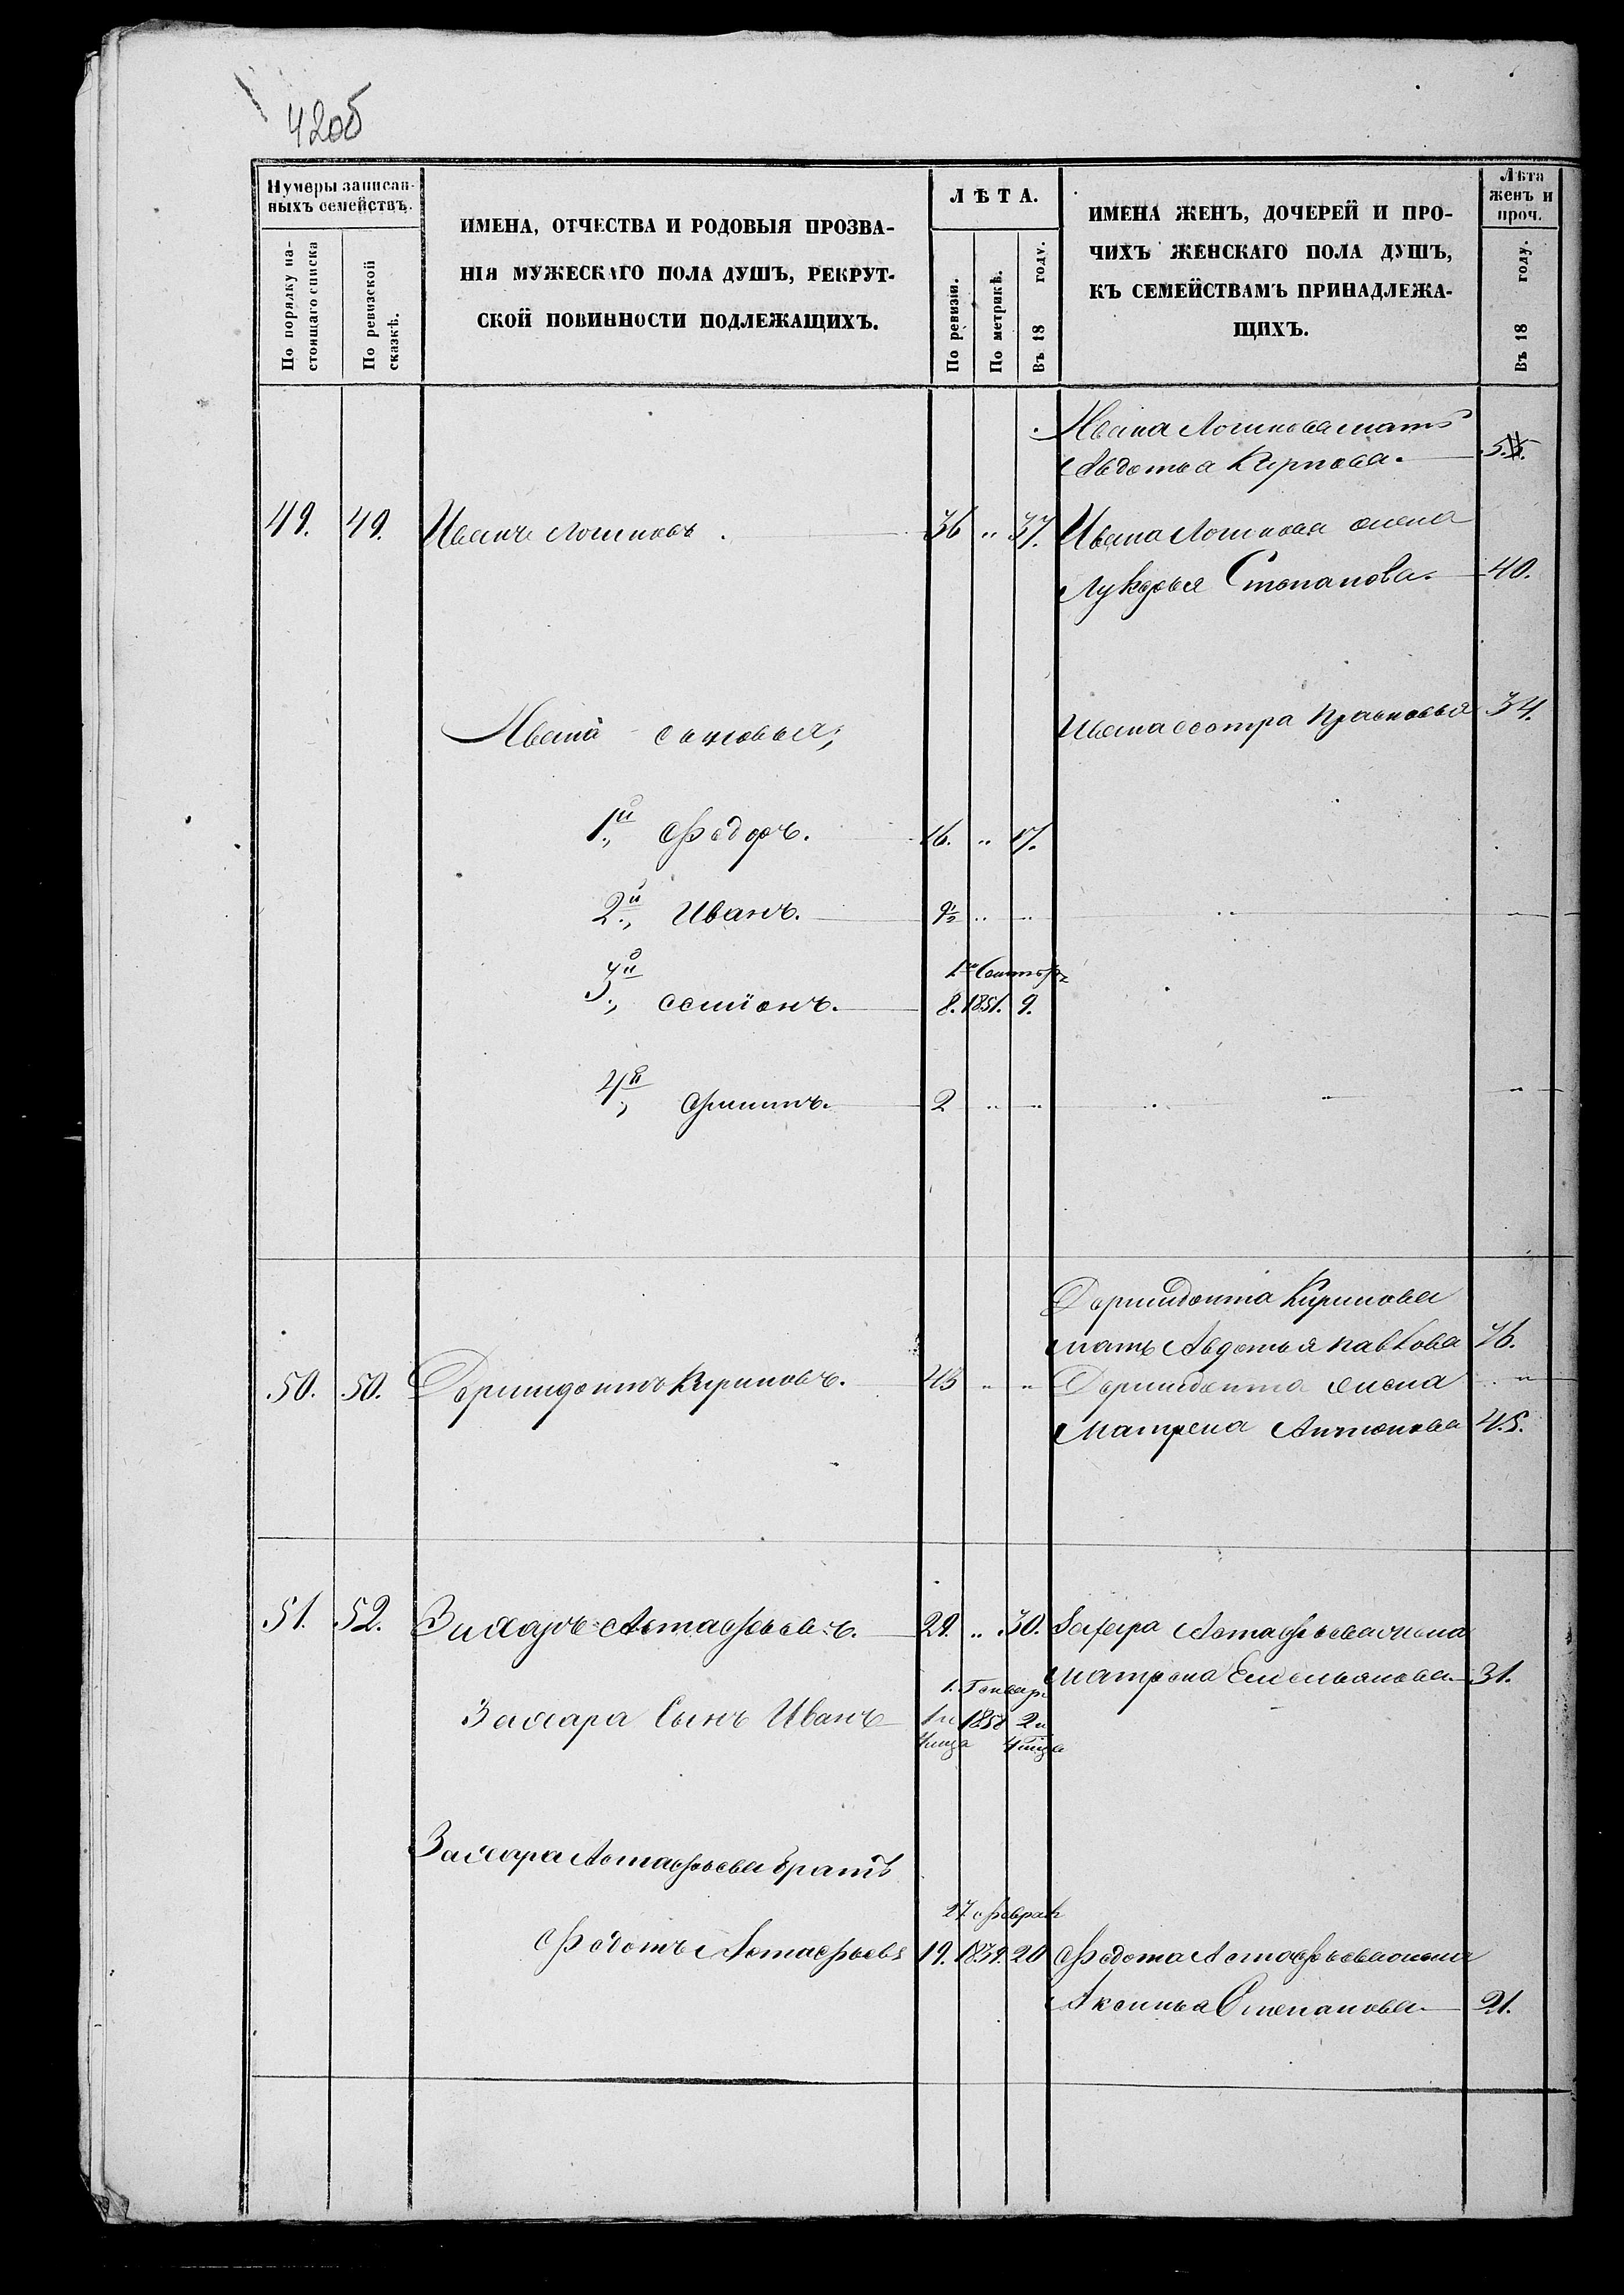 42об
Нумеры записан-
ныхъ семействъ.
По порядку на-
стоящаго списка
По ревизской
сказкѣ.
ИМЕНА, ОТЧЕСТВА И РОДОВЫЯ ПРОЗВА-
НІЯ МУЖЕСКАГО ПОЛА ДУШЪ, РЕКРУТ-
СКОЙ ПОВИННОСТИ ПОДЛЕЖАЩИХЪ.
ЛѢТА.
По ревизіи.
По метрикѣ.
Въ 18 году.
ИМЕНА ЖЕНЪ, ДОЧЕРЕЙ И ПРО-
ЧИХЪ ЖЕНСКАГО ПОЛА ДУШЪ,
КЪ СЕМЕЙСТВАМЪ ПРИНАДЛЕЖА-
ЩИХЪ.
Лѣта
женъ и
проч.
Въ 18 году.
Ивана Логинова мать
Авдотья Карпова.
49. 49. Иванъ Логиновъ. 36 " 37. Ивана Логинова жена
Лукерья Степанова. 40.
Ивана сыновья; Ивана сестра Прасковья 34.
1й Федоръ. 16. " 17.
2й Иванъ. " "
1го Сентября
3й Семіонъ. 8. 1851. 9.
4й Филипъ. 2 " "
Дормидонта Кирилова
мать Авдотья Павлова 76.
50. 50. Дормидонтъ Кириловъ. 43 " " Дормидонта жена
Матрена Антонова 45.
51. 52. Захаръ Астафьевъ. 29. " 30. Захара Астафьева жена
Матрена Емельянова 31.
1. Генваря
Захара Сынъ Иванъ 1 и 1858 2 и
4 мца 4 мца
Захара Астафьева братъ
27 Февраля
Федотъ Астафьевъ 19. 1839. 20 Федота Астафьева жена
Аксинья Степанова 21.